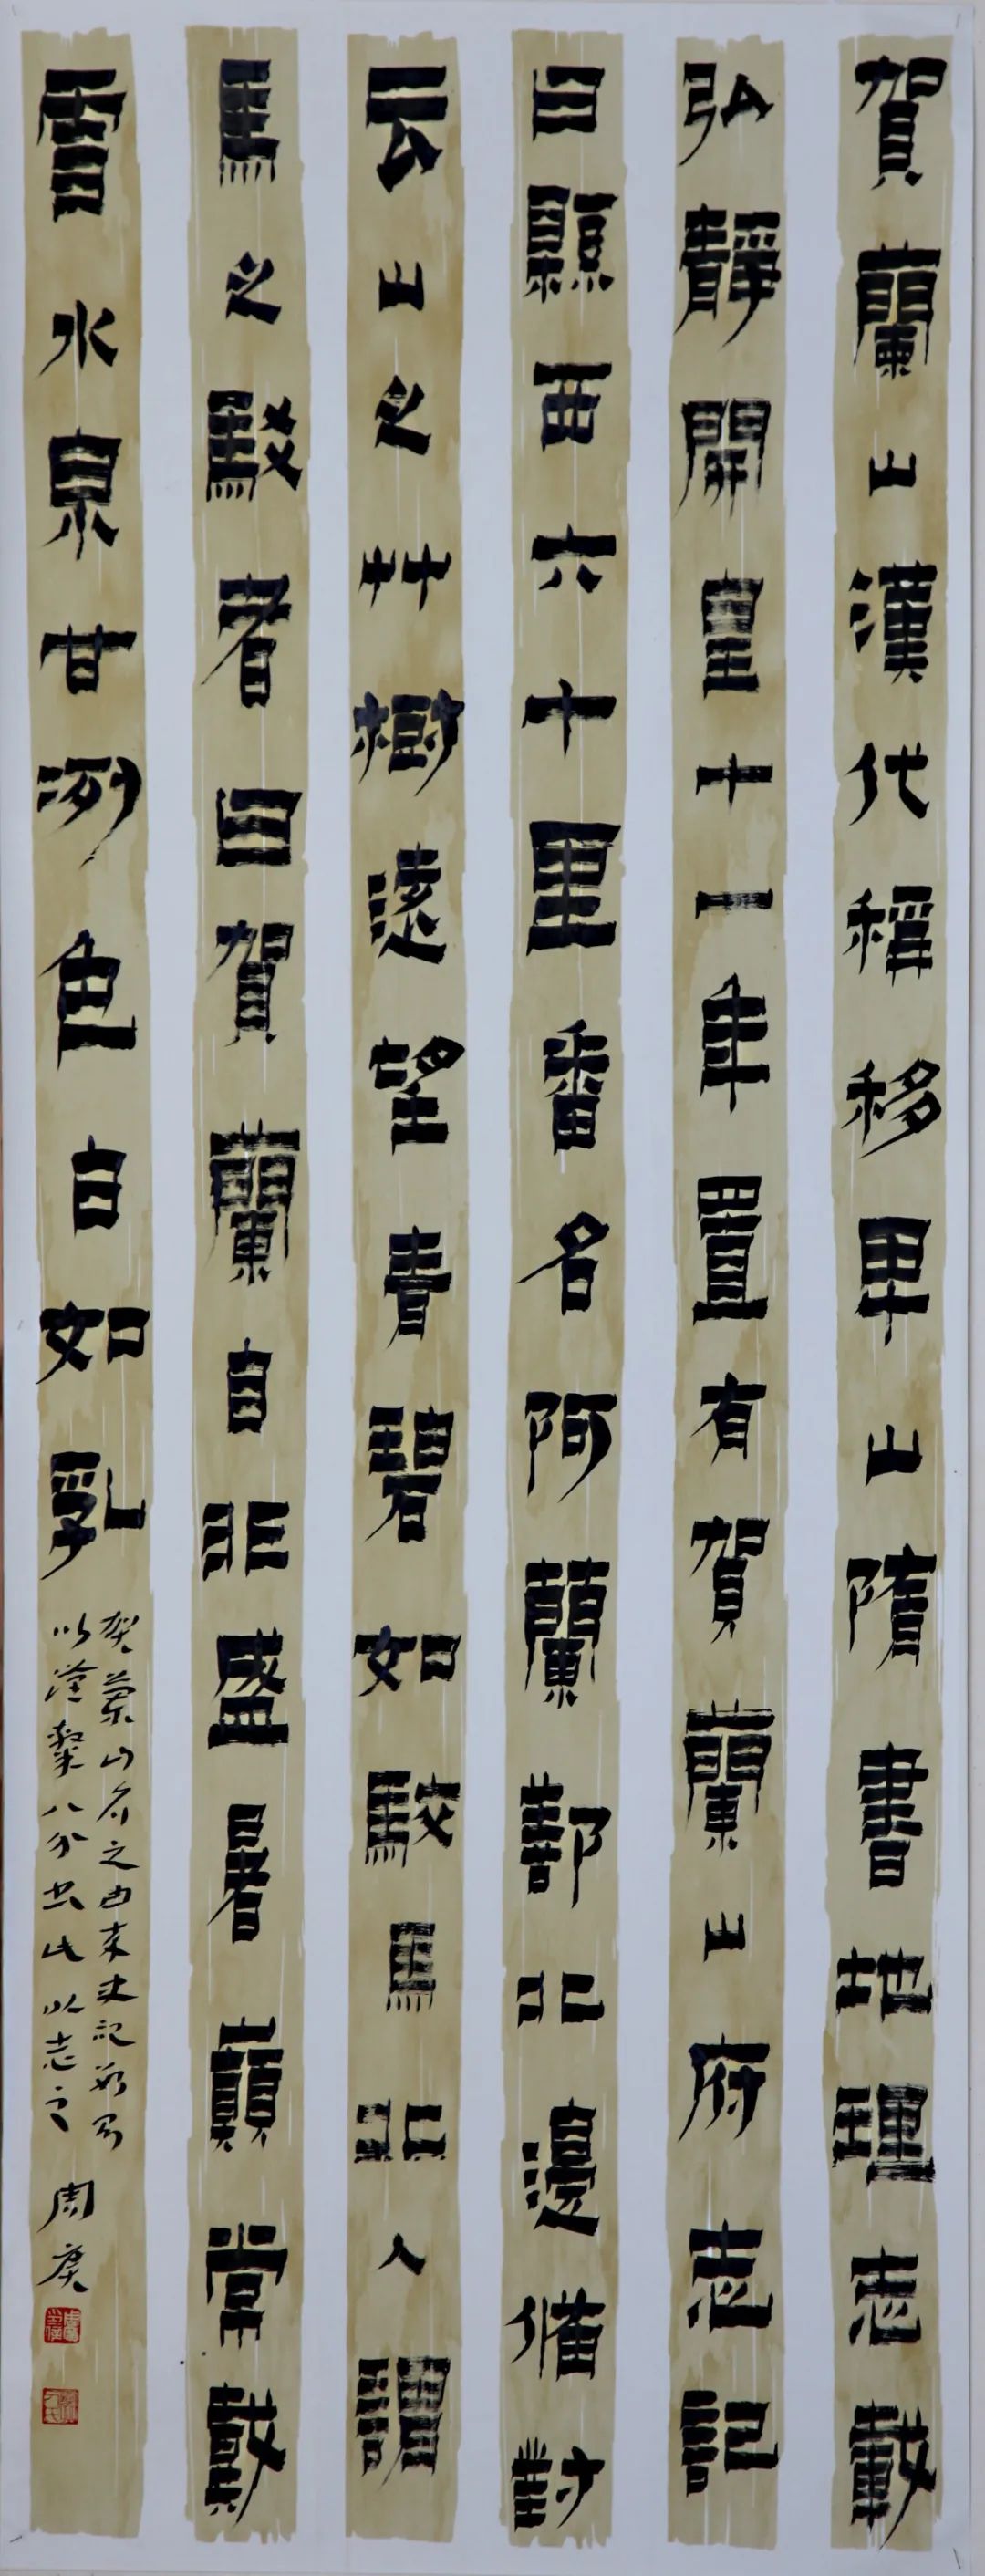 賀蘭山漢代稱移卑山隋書地理志載
弘靜開皇十一年置有賀蘭山府志記
曰縣西六十里番名阿蘭鄯北邊備對
云山之艸樹遠望青碧如駮馬北人謂
馬之駁者曰賀蘭自非盛暑巔常戴
雪水泉甘冽色白如乳
贺蘭山名之由来史記数则
以漢隸八分书此以志之
周庚